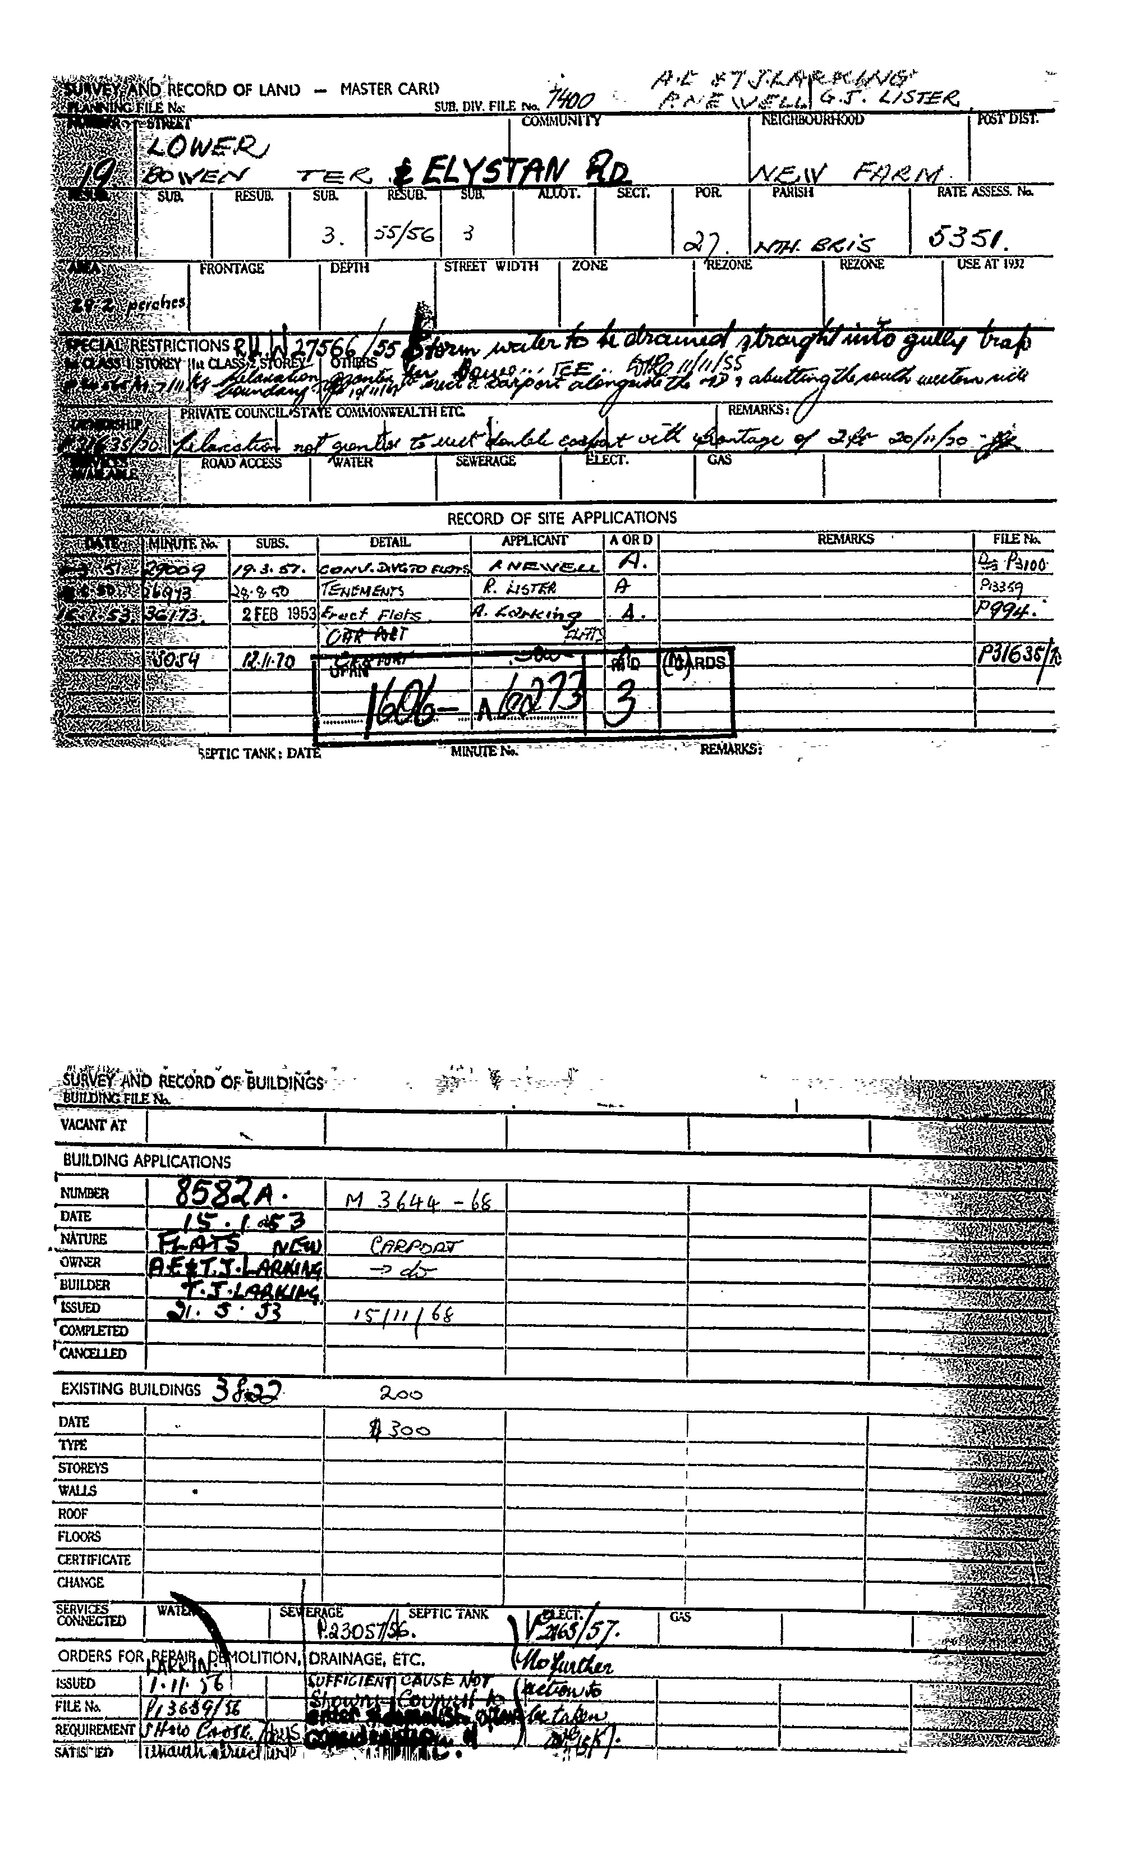 A.E & T.J. LARKING
SURVEY AND RECORD OF LAND — MASTER CARD
PLANNING FILE No.
SUB. DIV. FILE No. 7400
P. NEWELL G.J. LISTER
NUMBER STREET COMMUNITY NEIGHBOURHOOD POST DIST.
LOWER
19 BOWEN TER & ELYSTAN RD NEW FARM
RESUB. SUB. RESUB. SUB. RESUB. SUB. ALLOT. SECT. POR. PARISH RATE ASSESS. No.
3. 55/56 3 27. NTH. BRIS 5351.
AREA FRONTAGE DEPTH STREET WIDTH ZONE REZONE REZONE USE AT 1932
29.2 perches
SPECIAL RESTRICTIONS R.H.W 27566/55 Storm water to be drained straight into gully trap
1st CLASS 1 STOREY 1st CLASS 2 STOREY OTHERS 11/11/55
Relaxation boundary granted to erect a carport alongside the abutting the south western side
OWNERSHIP PRIVATE COUNCIL STATE COMMONWEALTH ETC. REMARKS:
P31635/70 Relaxation not granted to erect double carport with frontage of 2ft 20/11/70
SERVICES AVAILABLE ROAD ACCESS WATER SEWERAGE ELECT. GAS
RECORD OF SITE APPLICATIONS
DATE MINUTE No. SUBS. DETAIL APPLICANT A OR D REMARKS FILE No.
29009 19.3.57. CONV. DWG TO FLATS P. NEWELL A. P3100
26973 28-8-50 TENEMENTS R. LISTER A P13359
36173. 2 FEB 1953 Erect Flats A. Larking A. P994.
CAR PORT FLATS
3054 12.11.70 CARPORT P31635/70
UPAN CARDS
1606- A6273 3
SEPTIC TANK: DATE MINUTE No. REMARKS:
SURVEY AND RECORD OF BUILDINGS
BUILDING FILE No.
VACANT AT
BUILDING APPLICATIONS
NUMBER 8582A. M 3644-68
DATE 15.1.53
NATURE FLATS NEW CARPORT
OWNER A.E & T.J. LARKING → do
BUILDER T.J. LARKING
ISSUED 21.5.53 15/11/68
COMPLETED
CANCELLED
EXISTING BUILDINGS 3822 200
DATE $300
TYPE
STOREYS
WALLS
ROOF
FLOORS
CERTIFICATE
CHANGE
SERVICES CONNECTED WATER SEWERAGE SEPTIC TANK ELECT. GAS
P.23057/56.
ORDERS FOR REPAIR, DEMOLITION, DRAINAGE, ETC. No further
LARKIN.
ISSUED 1.11.56 SUFFICIENT CAUSE NOT action to
FILE No. P13659/56 Shown - Council to be taken
REQUIREMENT Show Cause
SATISFIED